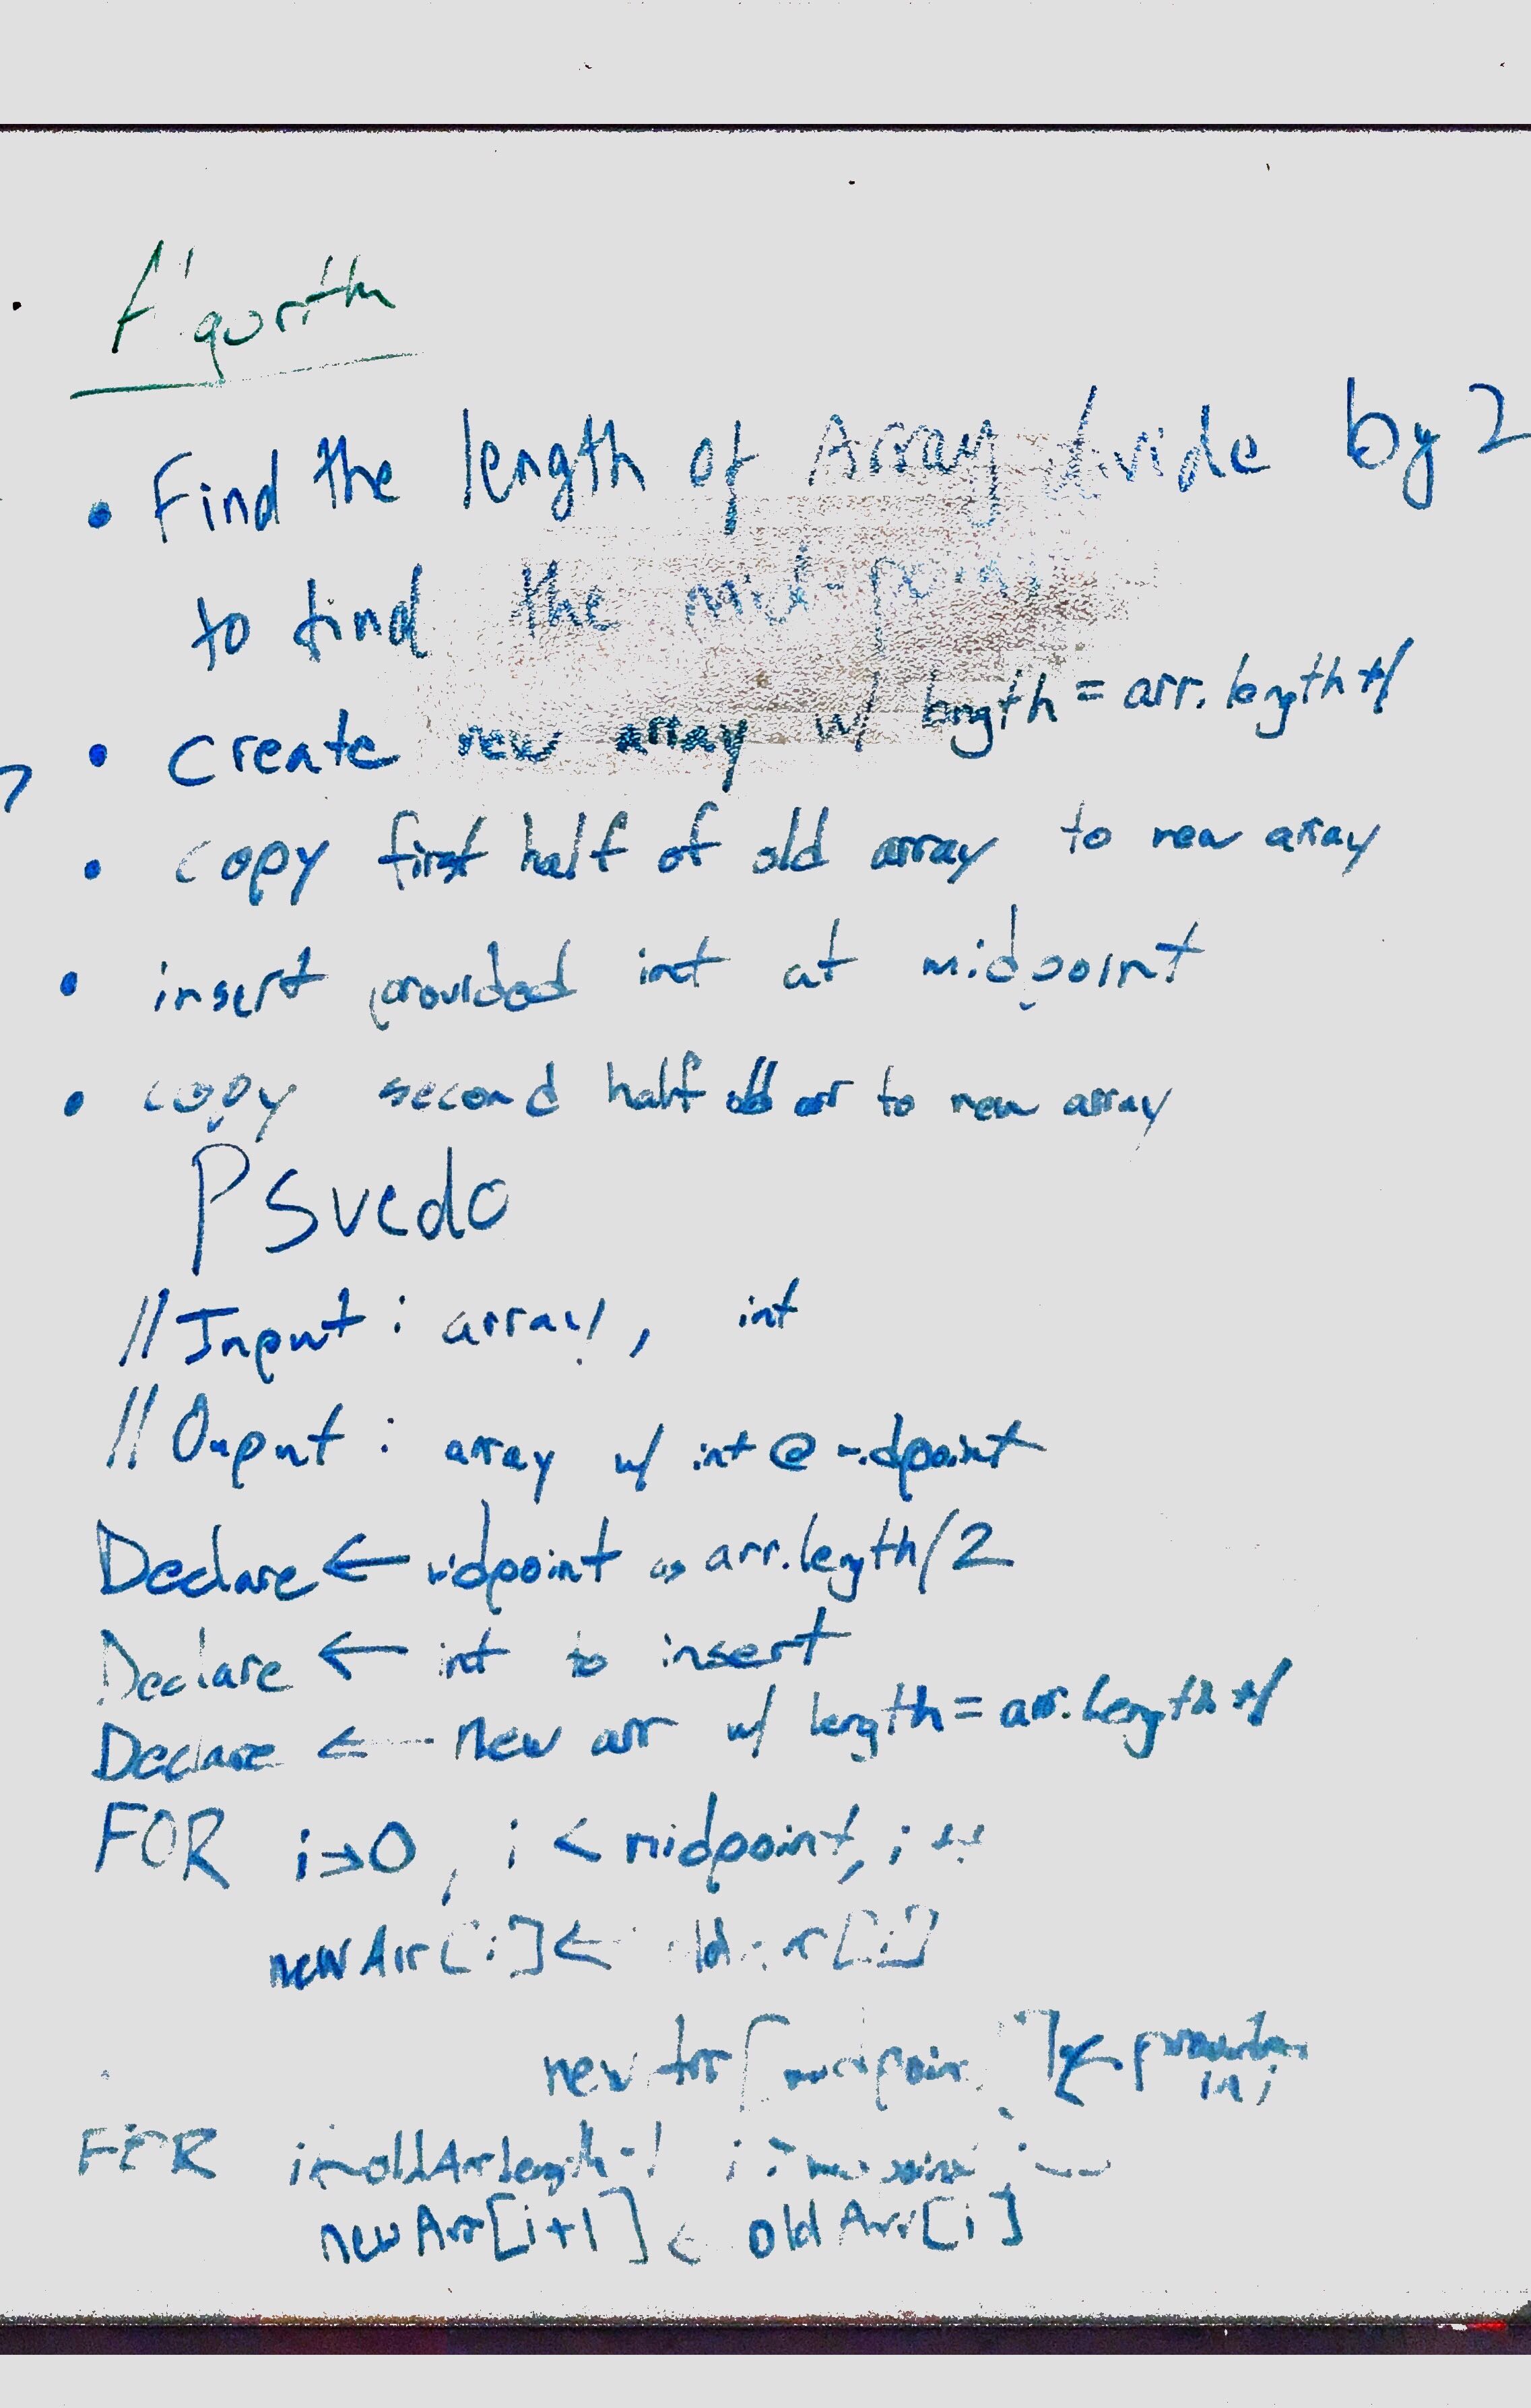 Algorithm
• Find the length of Array divide by 2
to find the mid-point
• Create new array w/ length = arr.length +1
• copy first half of old array to new array
• insert provided int at midpoint
• copy second half old arr to new array
Psuedo
// Input : array, int
// Ouput : array w/ int @ midpoint
Declare ← midpoint as arr.length/2
Declare ← int to insert
Declare ← new arr w/ length = arr.length +1
FOR i→0, i < midpoint, i++
newArr[i] ← oldArr[i]
newArr[midpoint] ← provided int
FOR i←oldArr.length-1 i midpoint i--
newArr[i+1] ← oldArr[i]